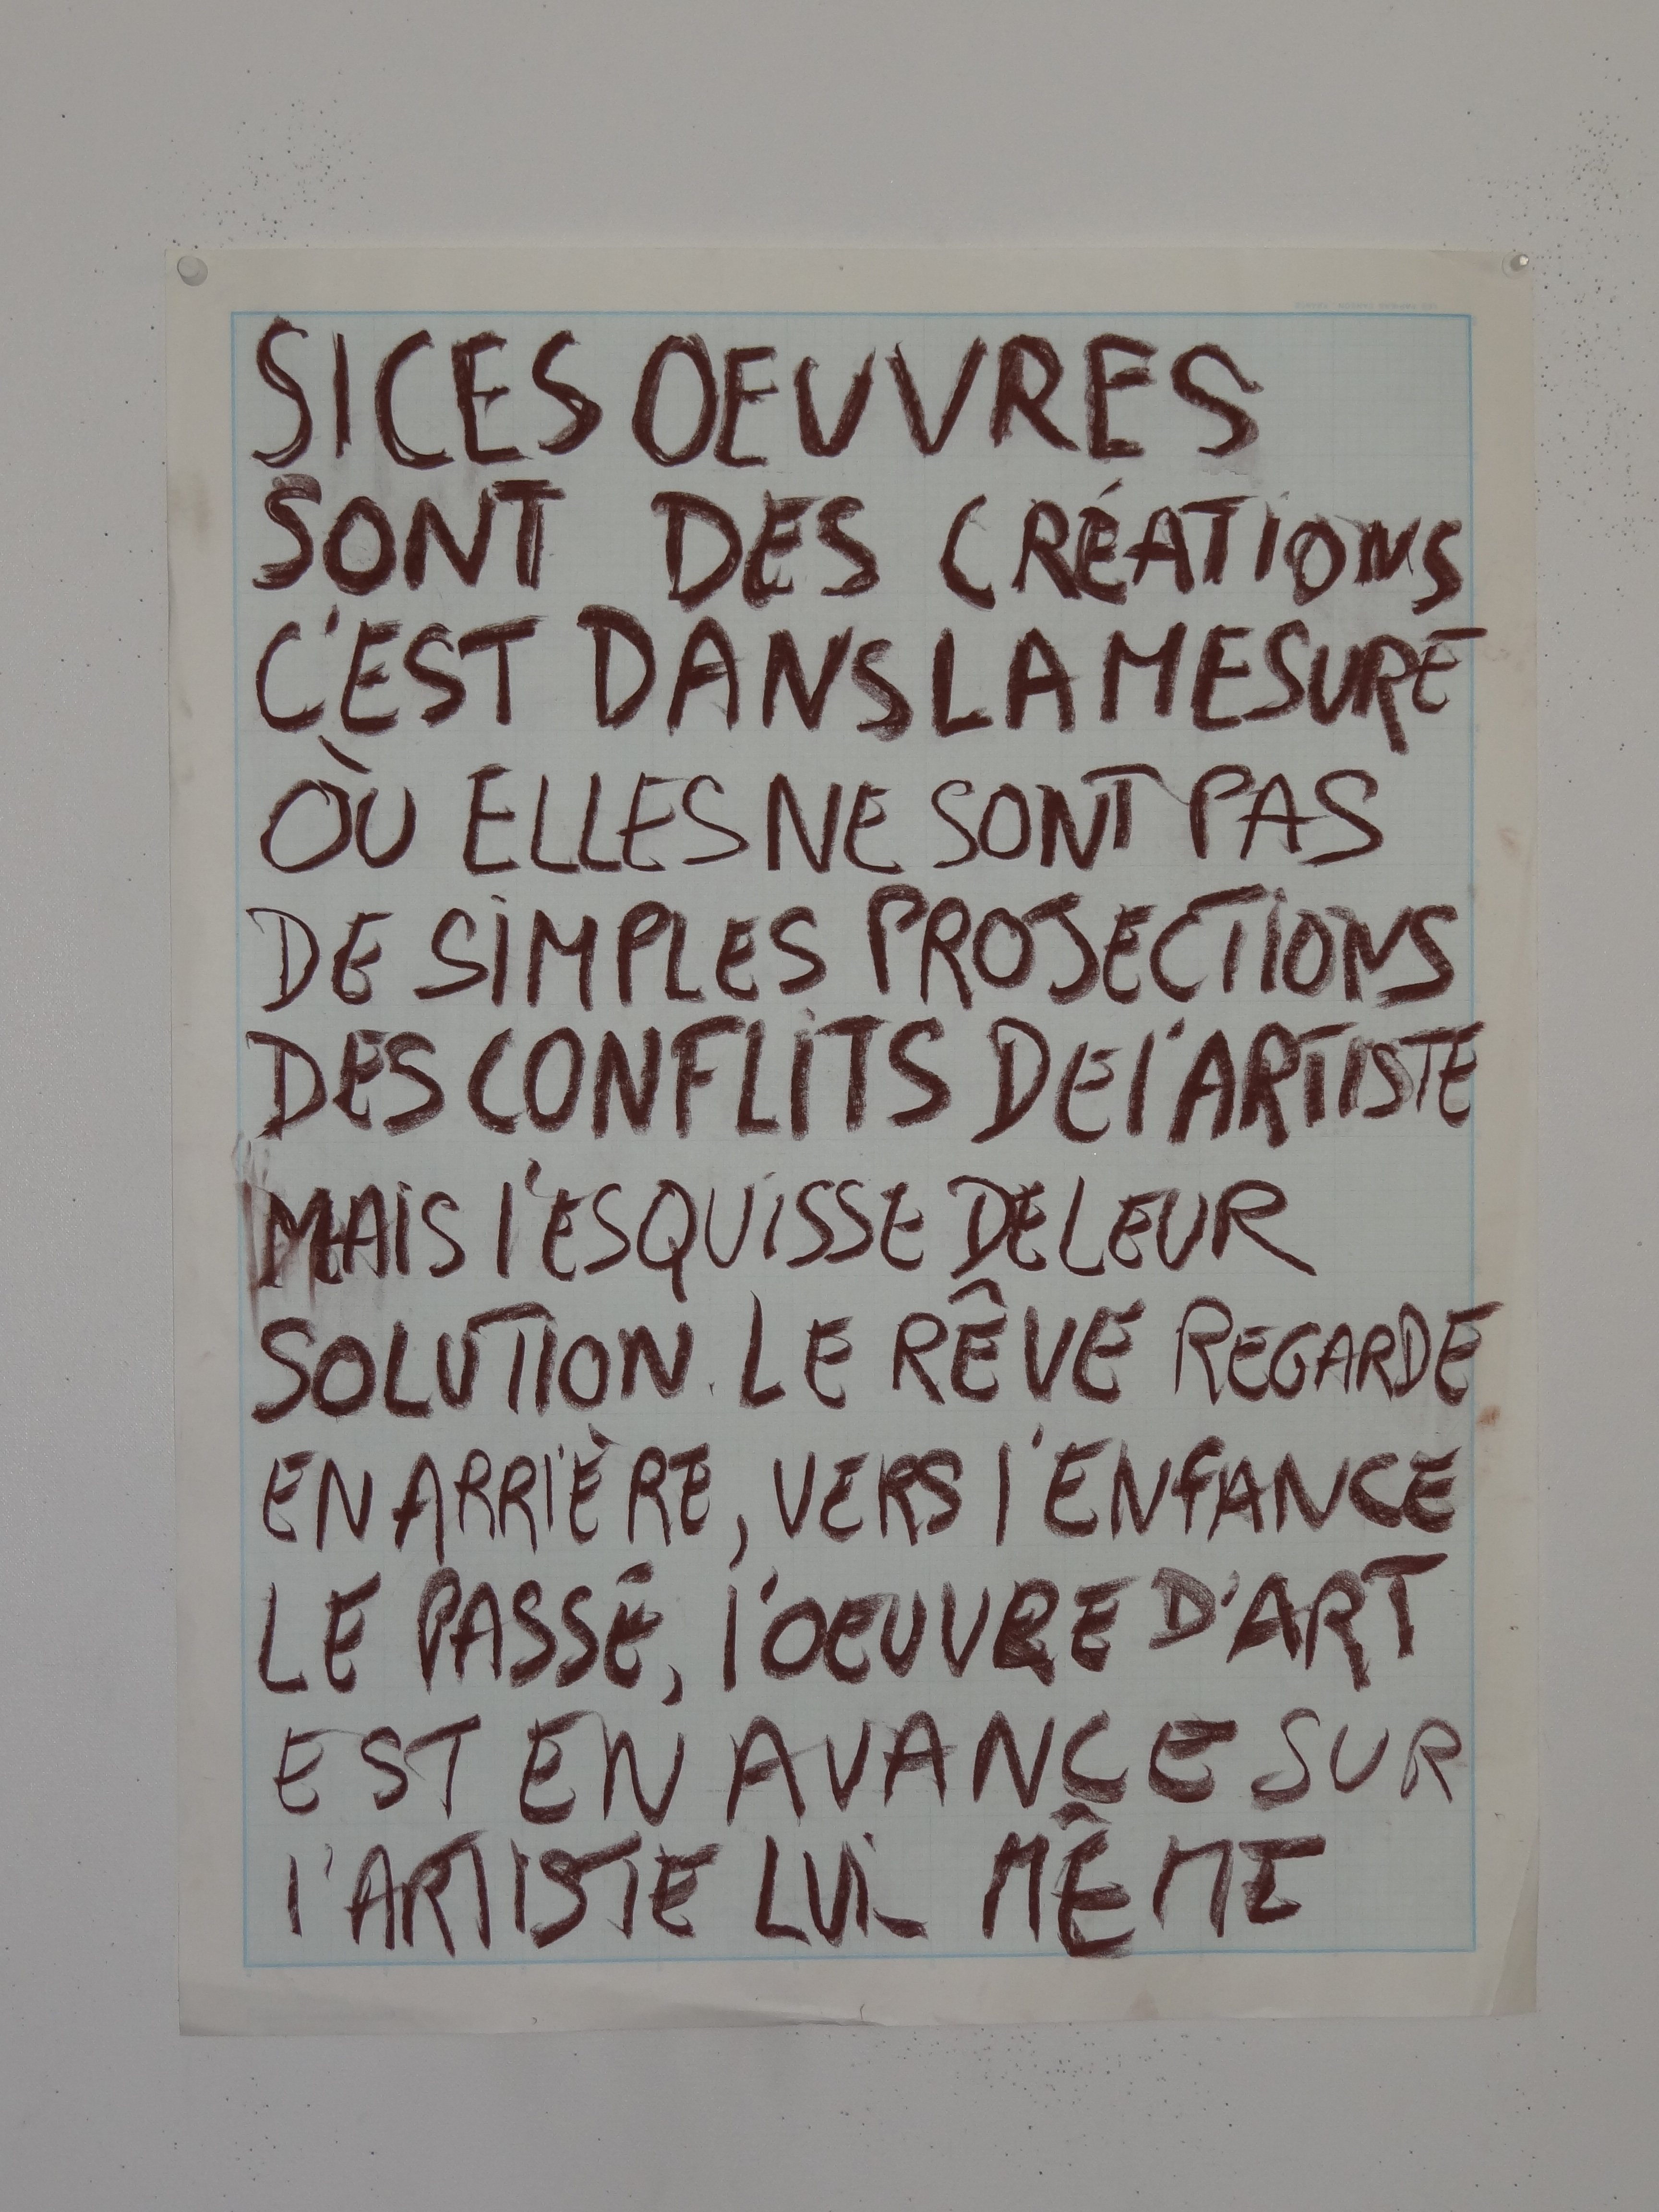 SI CES OEUVRES
SONT DES CRÉATIONS
C'EST DANS LA MESURE
OÙ ELLES NE SONT PAS
DE SIMPLES PROJECTIONS
DES CONFLITS DE l'ARTISTE
MAIS l'ESQUISSE DE LEUR
SOLUTION. LE RÊVE REGARDE
EN ARRIÈRE, VERS l'ENFANCE
LE PASSÉ, l'OEUVRE D'ART
EST EN AVANCE SUR
l'ARTISTE LUI-MÊME